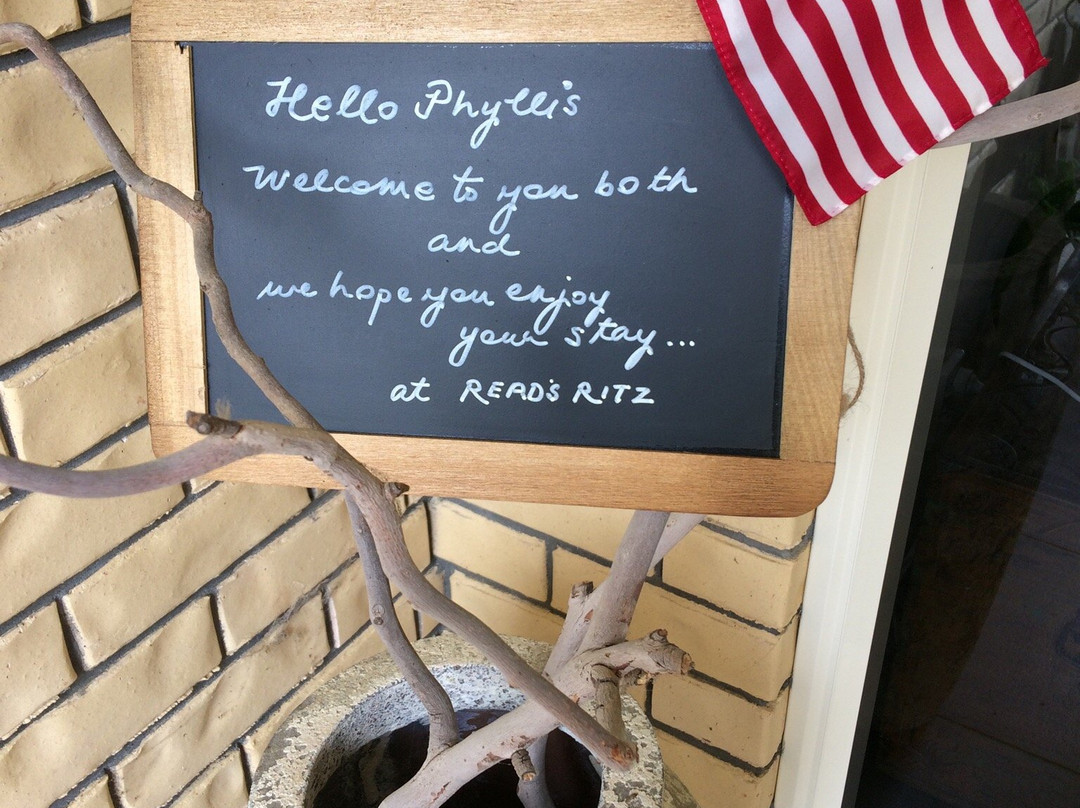 Hello Phyllis
Welcome to you both
and
we hope you enjoy
your stay...
at READ'S RITZ